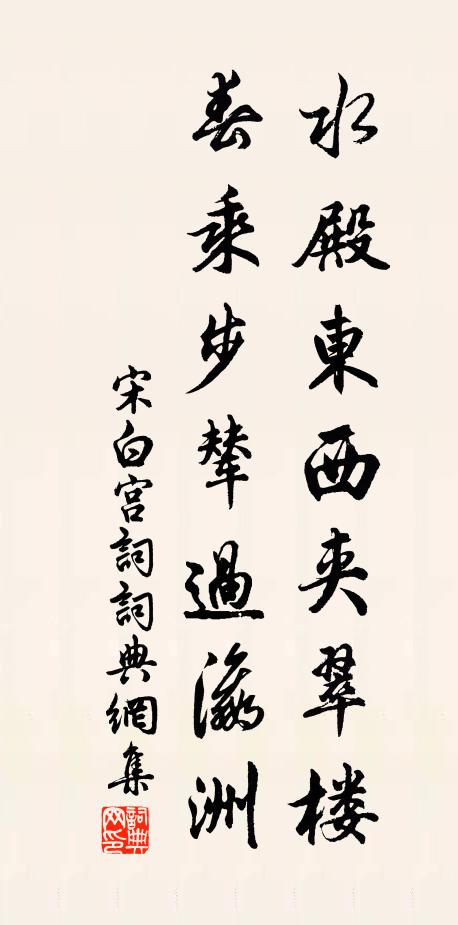 水殿東西夾翠楼
春乘步輦過瀛洲
宋白宫詞詞典網集
詞典網印